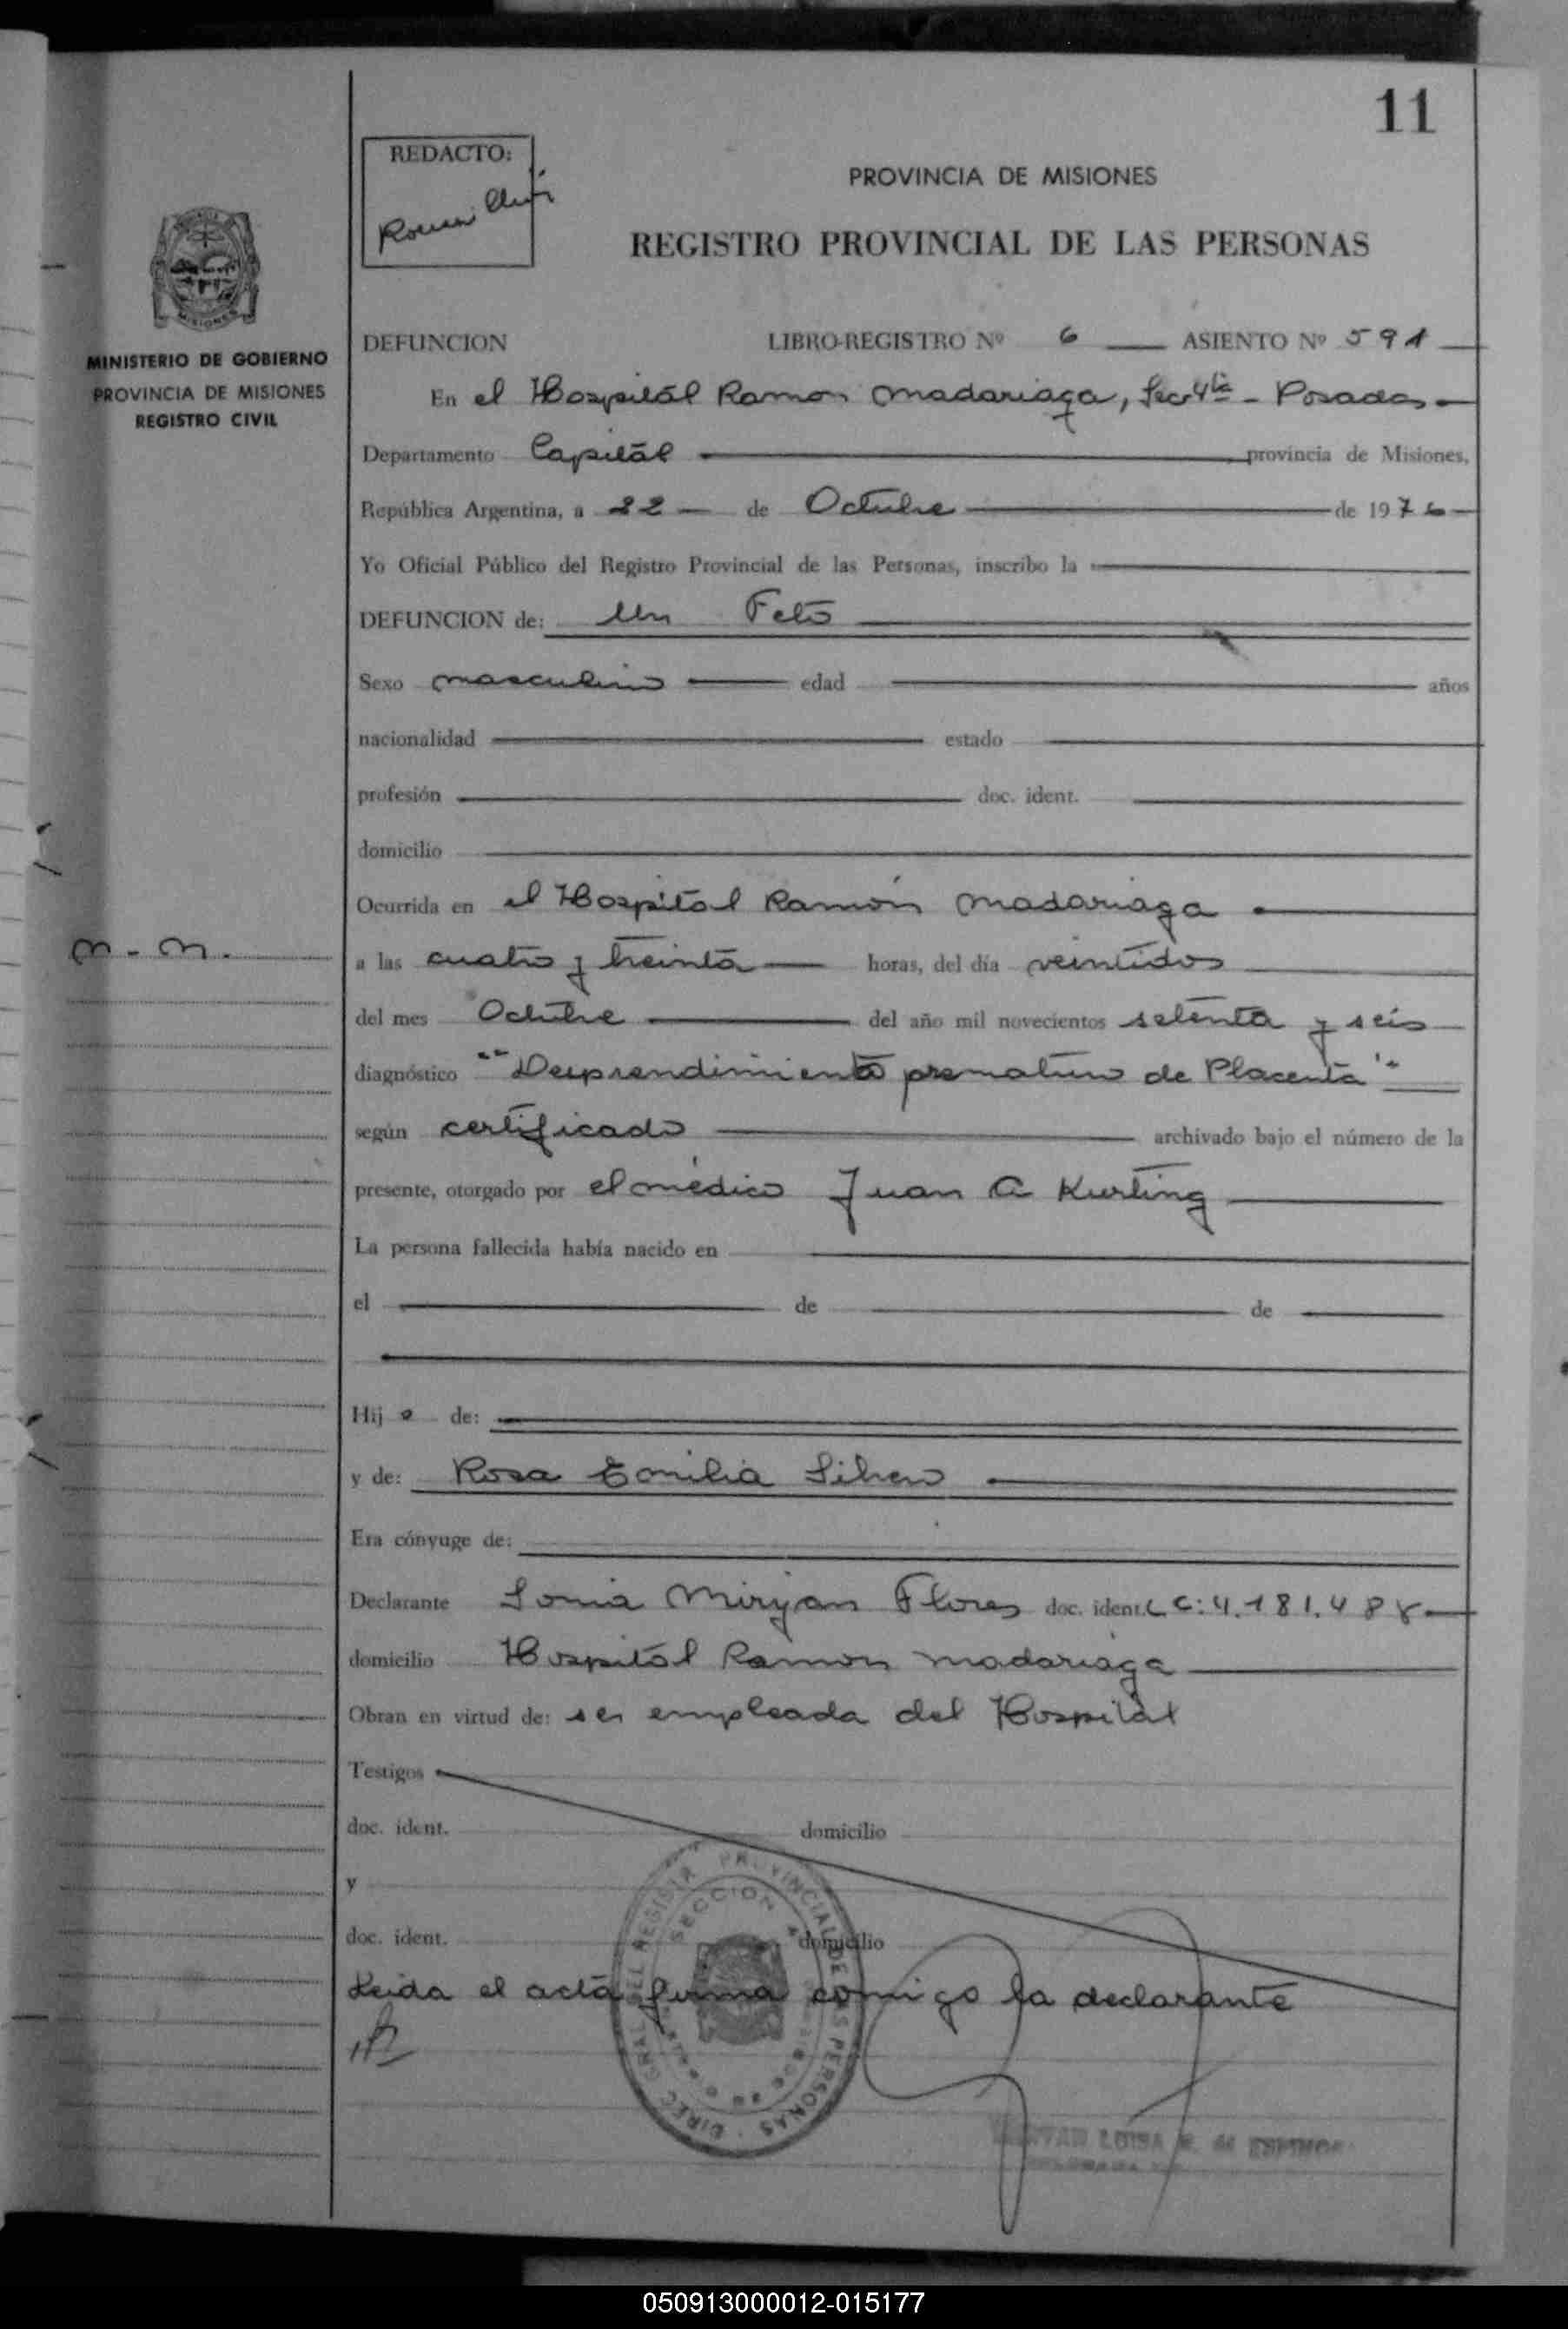 11
REDACTO:
PROVINCIA DE MISIONES
REGISTRO PROVINCIAL DE LAS PERSONAS
MISIONES
MINISTERIO DE GOBIERNO
PROVINCIA DE MISIONES
REGISTRO CIVIL
DEFUNCION LIBRO-REGISTRO Nº 6 ASIENTO Nº 591
En el Hospital Ramon Madariaga, Sec 4ta - Posadas
Departamento Capital provincia de Misiones,
República Argentina, a 22 de Octubre de 1976
Yo Oficial Público del Registro Provincial de las Personas, inscribo la
DEFUNCION de: Un Feto
Sexo masculino edad años
nacionalidad estado
profesión doc. ident.
domicilio
Ocurrida en el Hospital Ramón Madariaga
m - m.
a las cuatro y treinta horas, del día veintidos
del mes Octubre del año mil novecientos setenta y seis
diagnóstico "Desprendimiento prematuro de Placenta"
según certificado archivado bajo el número de la
presente, otorgado por el médico Juan A Kurting
La persona fallecida había nacido en
el de de
Hijo de:
y de: Rosa Emilia
Era cónyuge de:
Declarante Sonia Miryan Flores doc. ident. LC: 4.181.488
domicilio Hospital Ramon Madariaga
Obran en virtud de: ser empleada del Hospital
Testigos
doc. ident. domicilio
y
doc. ident. domicilio
Leida el acta firma comigo la declarante
DIREC GRAL DEL REGISTR PROVINCIAL DE LAS PERSONAS
SECCION
LUISA de ESPINOS
050913000012-015177